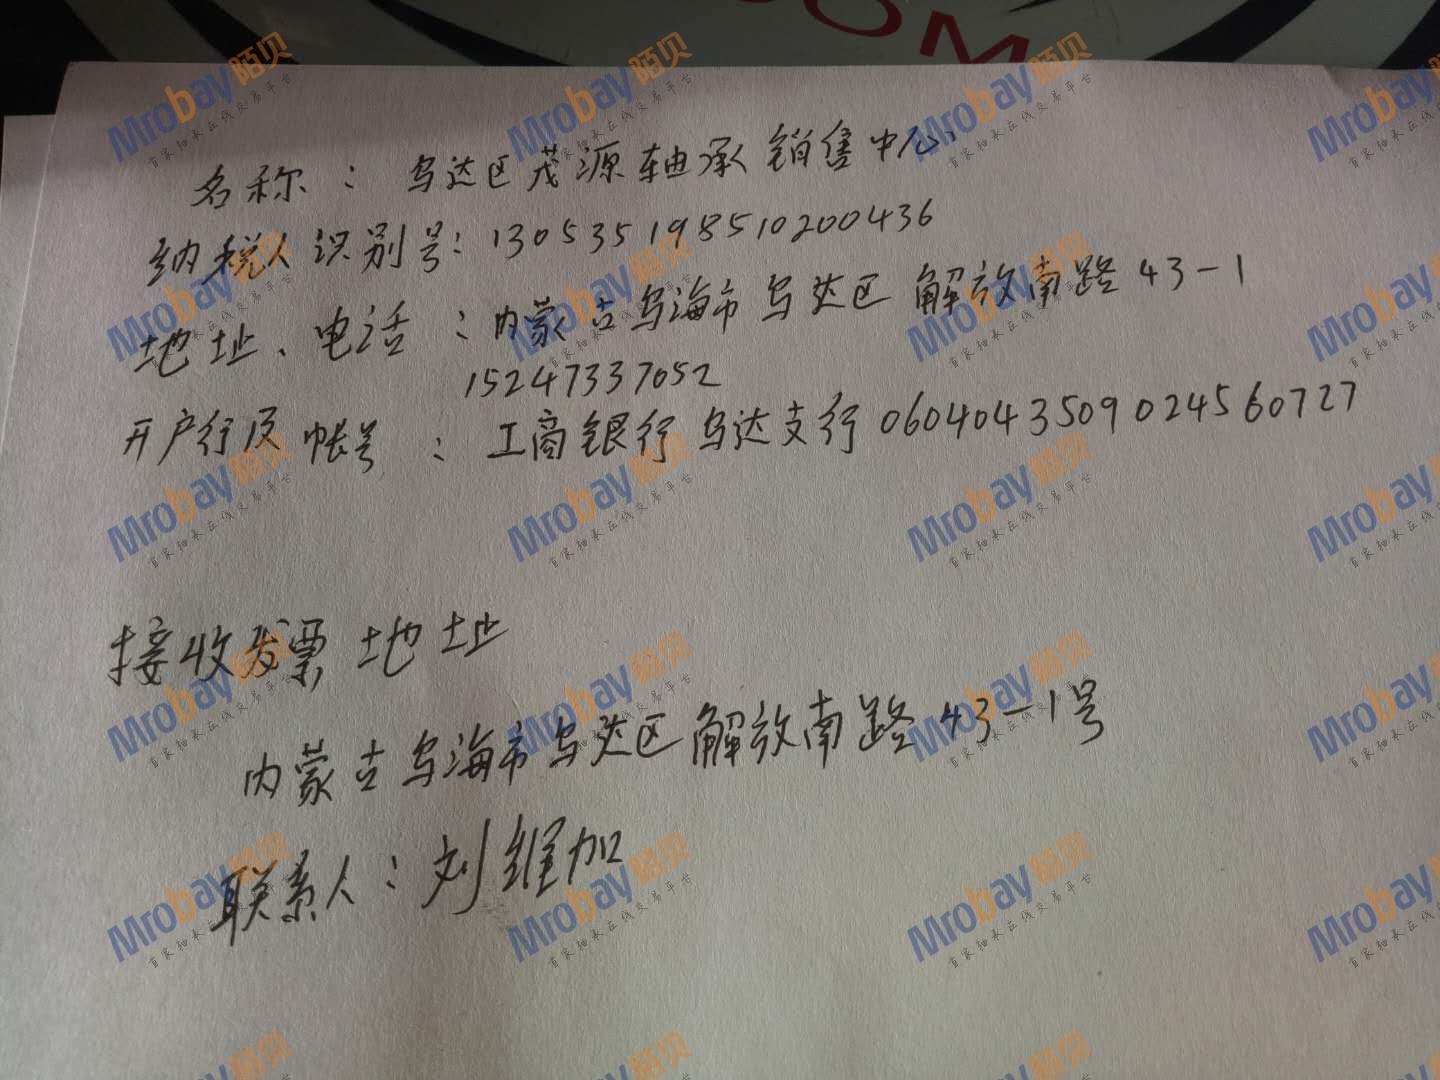 OOM
名称：乌达区茂源轴承销售中心
纳税人识别号：130535198510200436
地址、电话：内蒙古乌海市乌达区解放南路43-1
15247337052
开户行及帐号：工商银行乌达支行0604043509024560727
接收发票地址
内蒙古乌海市乌达区解放南路43-1号
联系人：刘维加
Mrobay陌贝
首家轴承在线交易平台